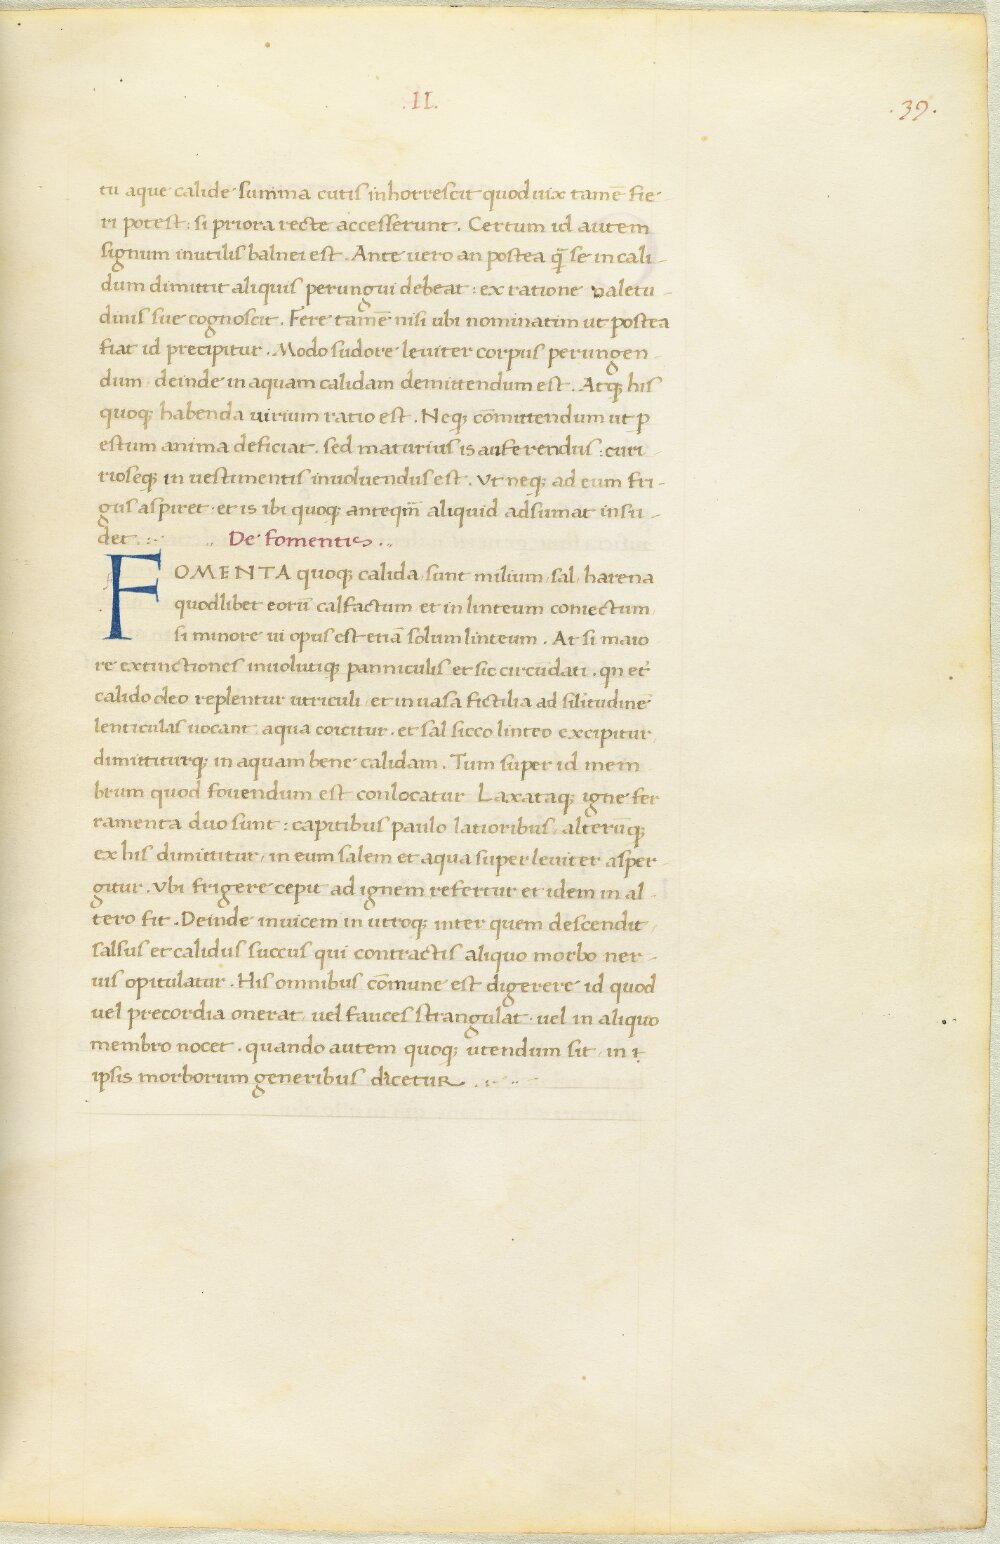 .II.
.39.
tu aque calide summa cutis inhorrescit quod uix tamē fie
ri potest : si priora recte accesserunt . Certum id autem
signum inutilis balnei est . Ante uero an postea q̄ se in cali-
dum dimittit aliquis perungui debeat : ex ratione ualetu-
dinis sue cognoscit . Fere tamē nisi ubi nominatim ut postea
fiat id precipitur . Modo sudore leuiter corpus perungen-
dum deinde in aquam calidam demittendum est . Atq; his
quoq; habenda uirium ratio est . Neq; cōmittendum ut p
estum anima deficiat . sed maturius is auferendus : curi-
rioseq; in uestimentis inuoluendus est . Vt neq; ad eum fri-
gus aspiret . et is ibi quoq; anteqm̄ aliquid adsumat insu-
det . De fomentis ..
FOMENTA quoq; calida sunt milium / sal / harena
quodlibet eorū calfactum et in linteum coniectum
si minore ui opus est etiā solum linteum . At si maio
re extinctiones inuolutiq; panniculis et sic circūdati . qn et
calido oleo replentur utriculi / et in uasa fictilia ad silitudinē
lenticulas uocant aqua coicitur . et sal sicco linteo excipitur
dimittiturq; in aquam bene calidam . Tum super id mem
brum quod fouendum est conlocatur Laxataq; igne fer
ramenta duo sunt : capitibus paulo latioribus / alterūq;
ex his dimittitur / in eum salem et aqua super leuiter asper-
gitur . Vbi frigere cepit ad ignem refertur et idem in al-
tero fit . Deinde inuicem in utroq; inter quem descendit
salsus et calidus succus qui contractis aliquo morbo ner-
uis opitulatur . His omnibus cōmune est digerere id quod
uel precordia onerat uel fauces strangulat . uel in aliquo
membro nocet . quando autem quoq; utendum sit in i
ipsis morborum generibus dicetur .